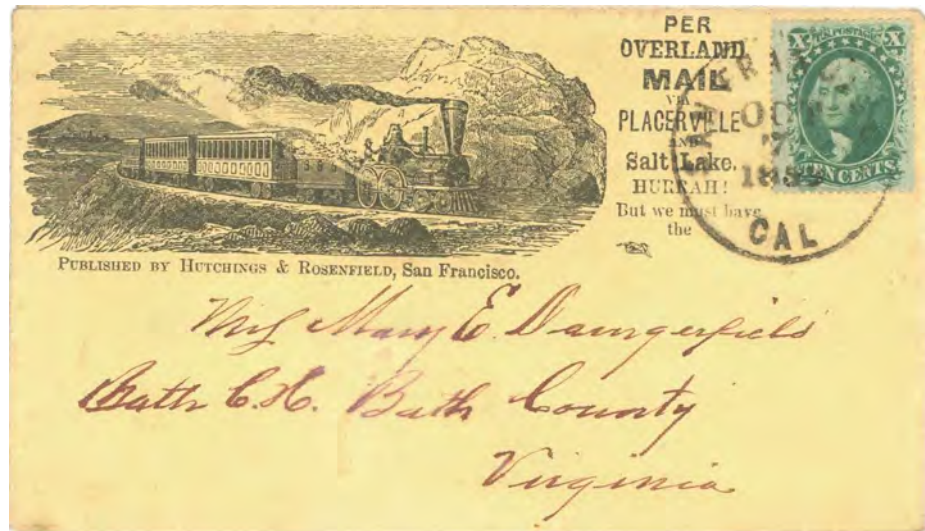 PER
OVERLAND
MAIL
VIA
PLACERVILLE
AND
Salt Lake.
HURRAH!
But we must have
the
PUBLISHED BY HUTCHINGS & ROSENFIELD, San Francisco.
X U.S. POSTAGE X
TEN CENTS
OC
7
CAL
Mary E. Daingerfield
Bath C.H. Bath County
Virginia